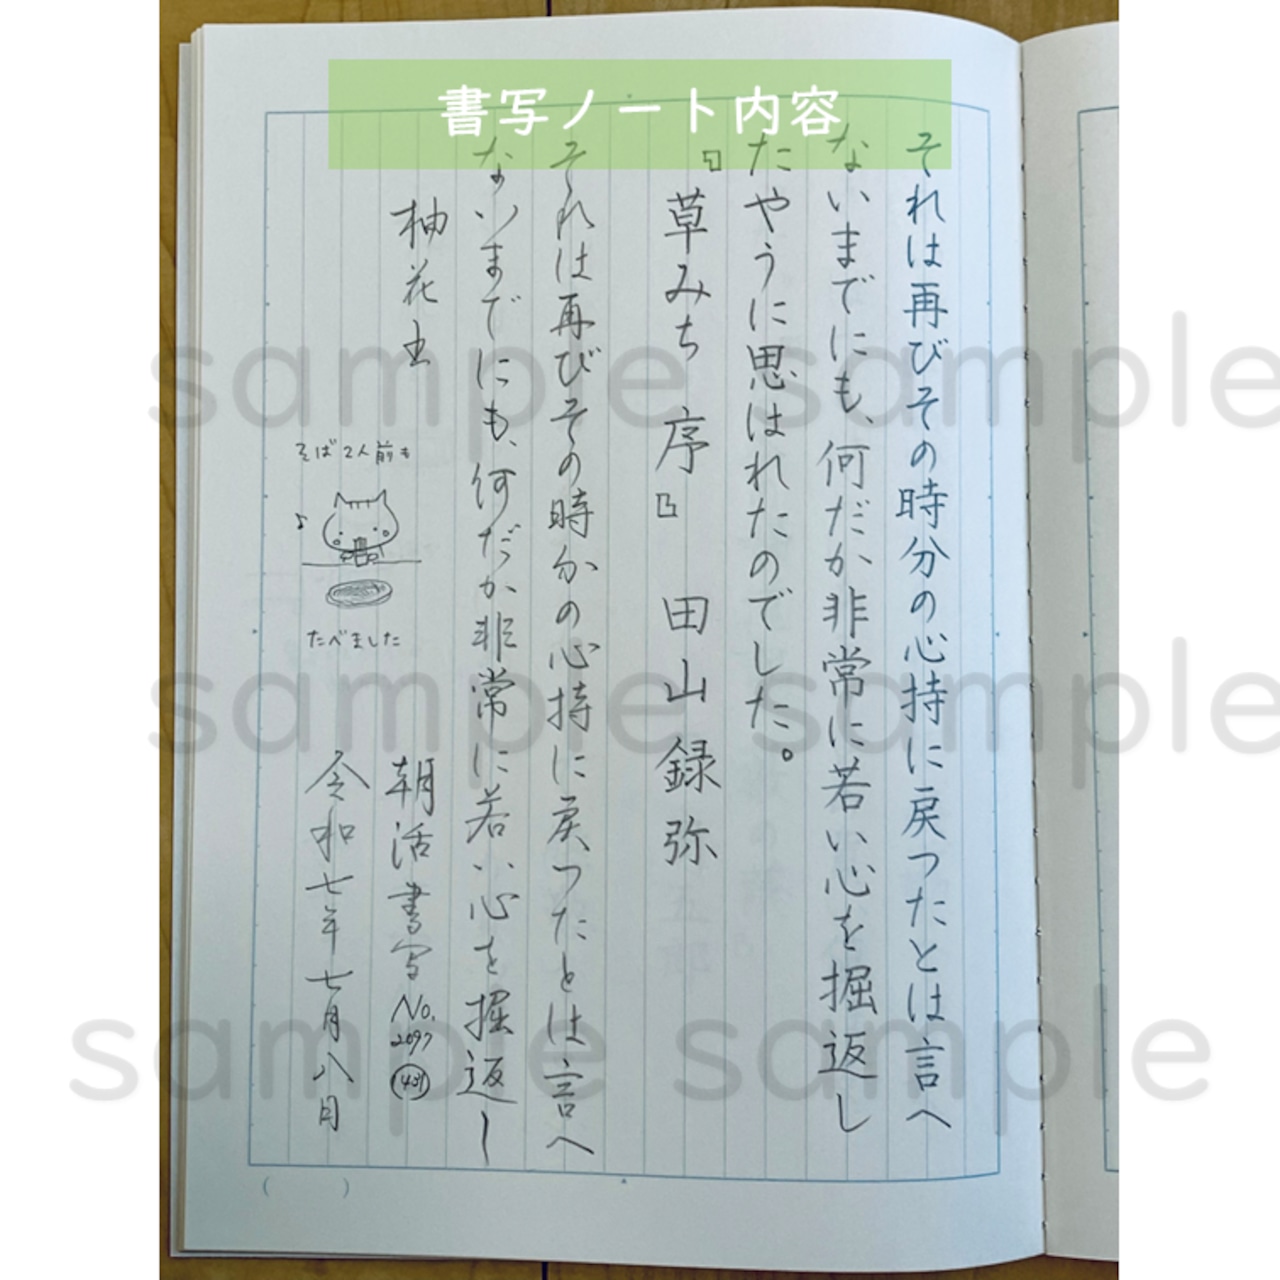 書写ノート内容
それは再びその時分の心持に戻つたとは言へ
ないまでにも、何だか非常に若い心を掘返し
たやうに思はれたのでした。
『草みち 序』 田山録弥
それは再びその時分の心持に戻つたとは言へ
ないまでにも、何だか非常に若い心を掘返し
柚花
そば2人前も
♪
たべました
朝活書写No.
2097
令和七年七月八日
sample sample
sample sample
sample sample